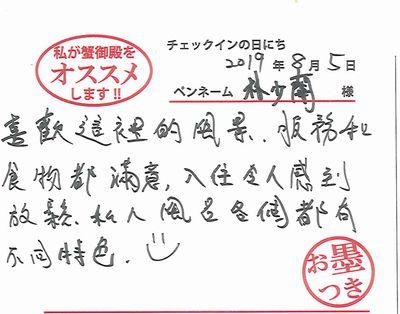 私が蟹御殿を
オススメ
します!!
チェックインの日にち
2019年8月5日
ペンネーム 林少蘭 様
喜歡這裡的風景、服務和
食物都滿意,入住令人感到
放鬆、私人風呂各個都有
不同特色.
お墨
つき